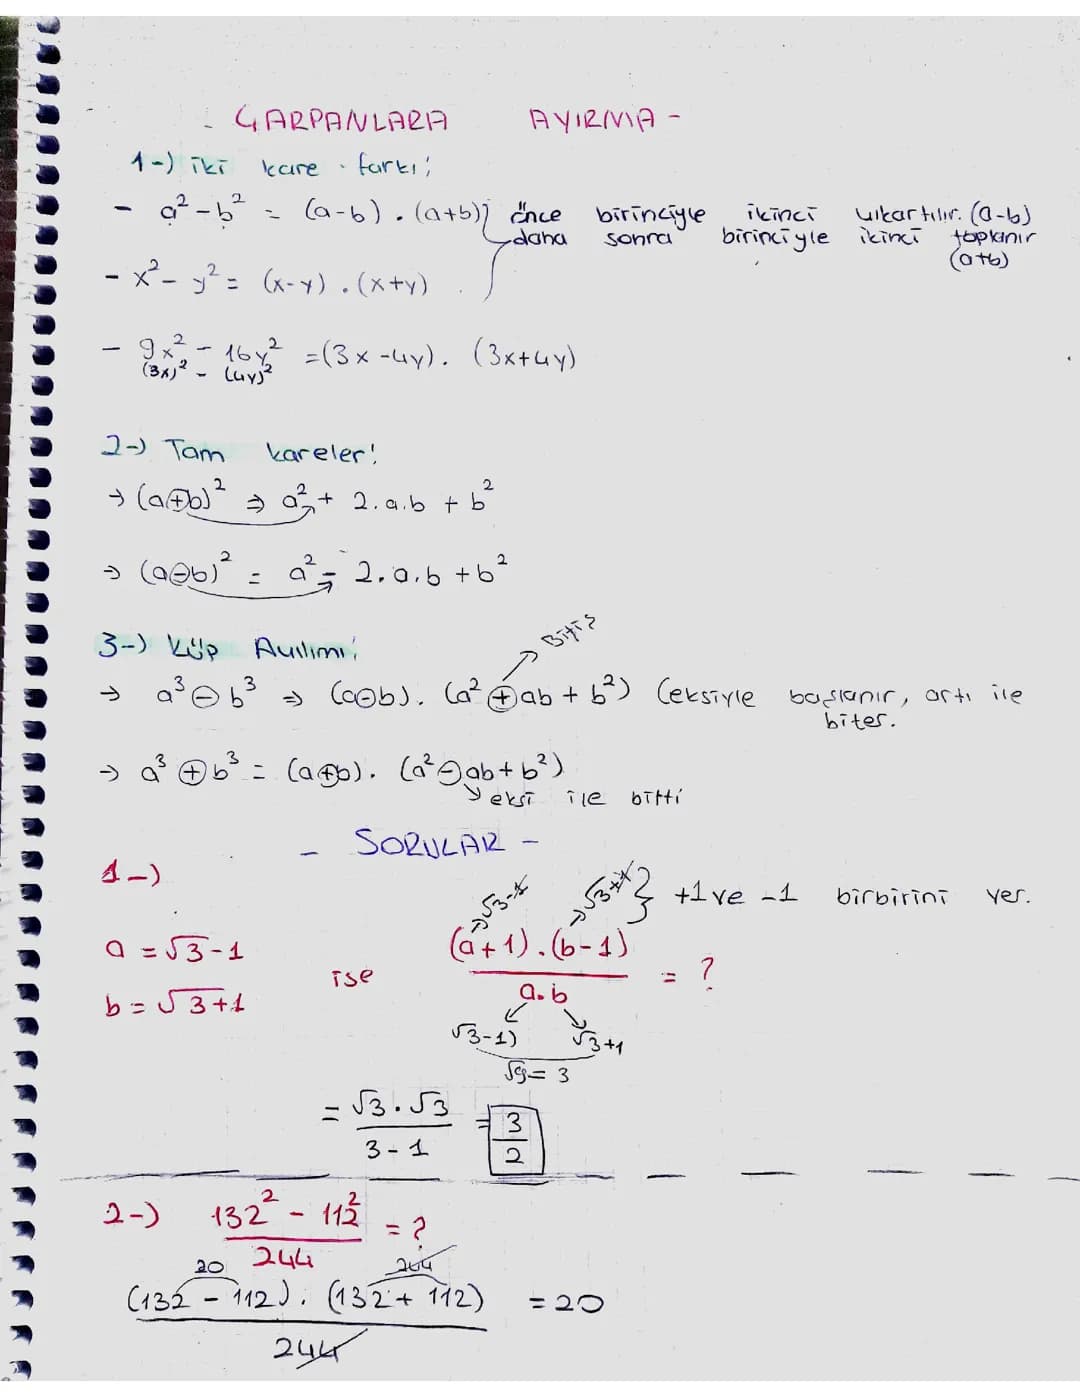 - ÇARPANLARA AYIRMA -
1-) iki kare farkı;
- a² - b² = (a-b) . (a+b) } önce birinciyle ikinci çıkartılır. (a-b)
daha sonra birinciyle ikinci toplanır
(a+b)
- x² - y² = (x-y) . (x+y)
- 9x² - 16y² = (3x-4y) . (3x+4y)
(3x)² - (4y)²
2-) Tam kareler;
→ (a+b)² ⇒ a² + 2.a.b + b²
→ (a-b)² = a² - 2.a.b + b²
3-) Küp Açılımı;
→ a³ - b³ ⇒ (a-b). (a² + ab + b²) (eksiyle başlanır, artı ile
biter.
→ a³ + b³ = (a+b). (a² - ab + b²)
eksi ile bitti
- SORULAR -
1-)
√3-1 √3+1 } +1 ve -1 birbirini yer.
a = √3-1
b = √3+1
ise
(a+1).(b-1)
a.b
= ?
√3-1) √3+1
√9 = 3
= √3.√3 / 3-1 = 3/2
2-) 132² - 112² / 244 = ?
20 244
(132 - 112). (132 + 112) = 20
244